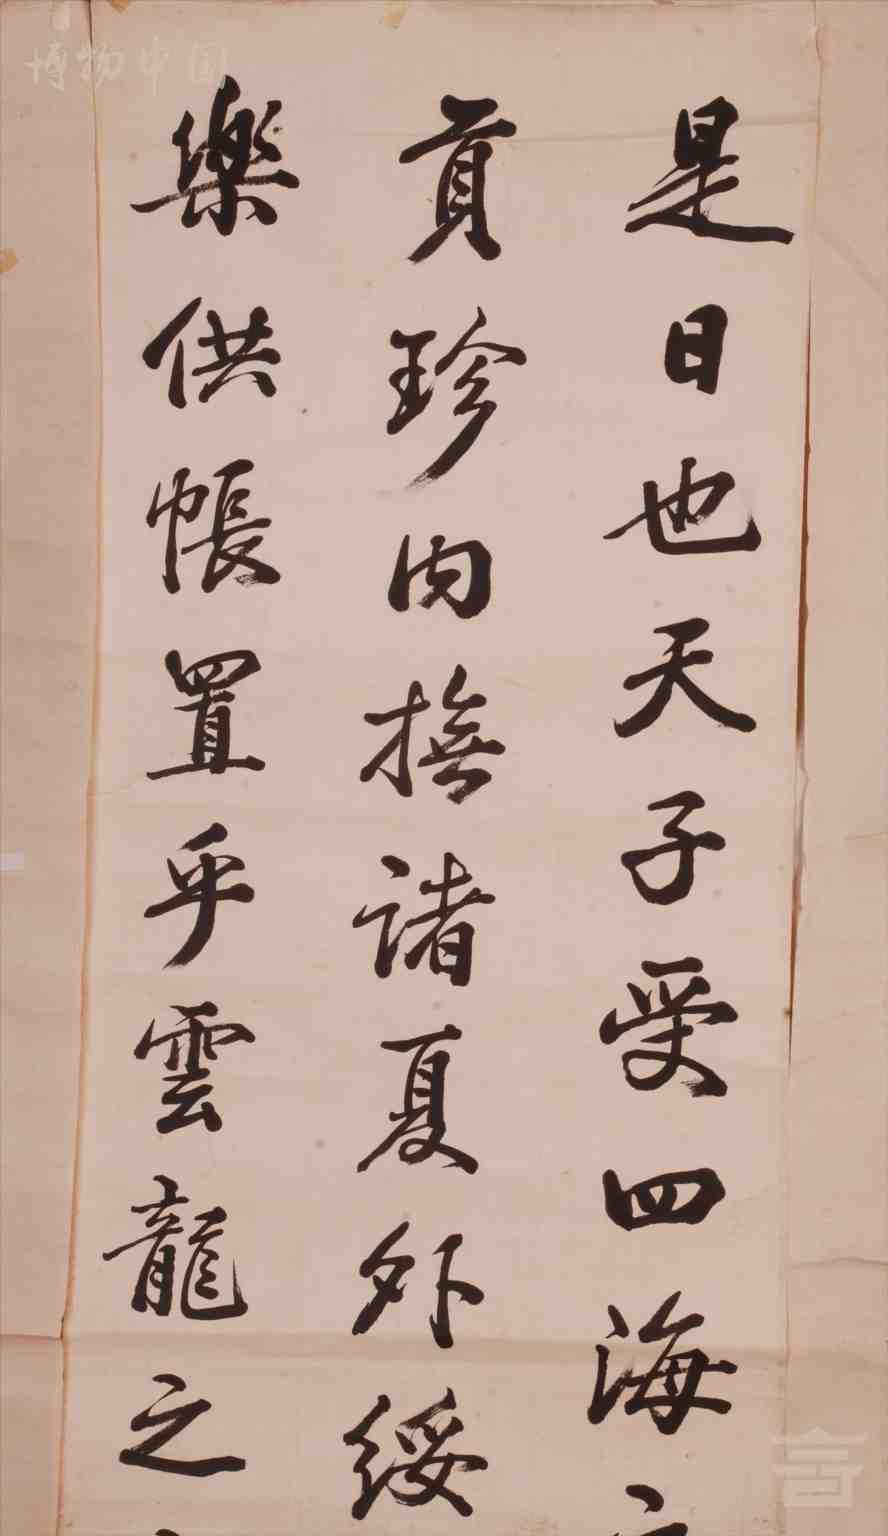 是日也天子受四海之
貢珍内撫諸夏外綏
樂供帳置乎雲龍之
博物中国